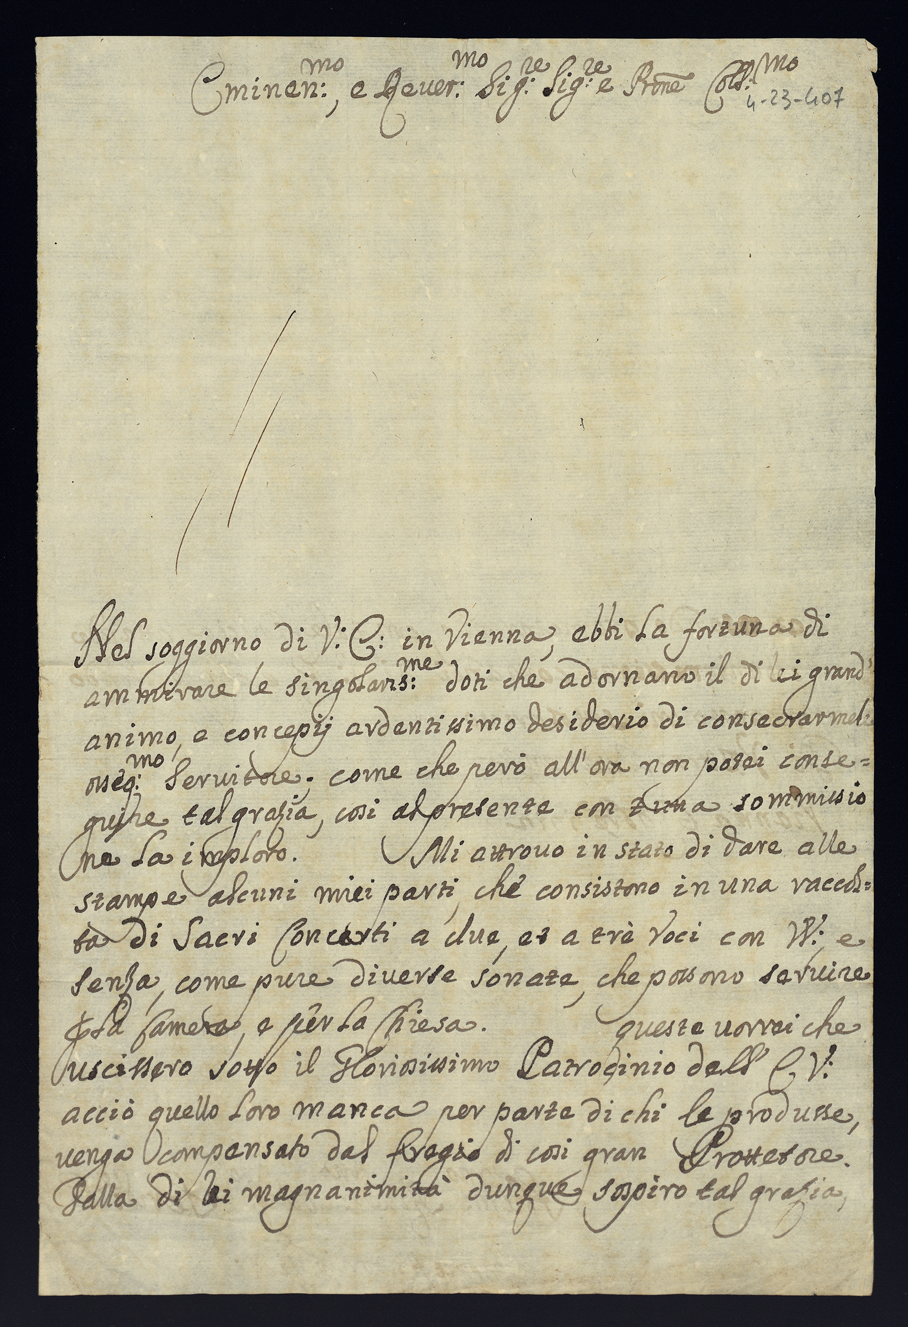 Eminen:mo, e Reuer:mo Sig:re Sig:re e Prōne Coll:mo
4-23-407
Nel soggiorno di V: E: in Vienna, ebbi la fortuna di
ammirare le singolaris:me doti che adornano il di lei grand'
animo, e concepij ardentissimo desiderio di consecrarmeli
osseq:mo Seruitore; come che però all'ora non potei conse=
guire tal grazia, cosi al presente con tuna sommissio
ne la imploro. Mi attrouo in stato di dare alle
stampe alcuni miei parti, che consistono in una raccol=
ta di Sacri Concerti a due, et a trè Voci con VV: e
senza, come pure diuerse sonate, che possono seruire
la Camera, e per la Chiesa. queste uorrei che
uscissero sotto il Gloriosissimo Patrocinio dell' E. V:
acciò quello loro manca per parte di chi le produsse,
uenga compensato dal fregio di cosi gran Prottetore.
Dalla di lei magnanimità dunque sospiro tal grazia,